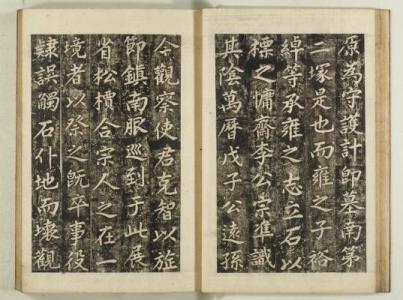 原為守護計即墓南第
二塚是也而雍之子裕
綽等承雍之志立石以
標之慵齋李公崇準識
其陰萬曆戊子公遠孫
今觀察使君克智以旌
節鎮南服巡到于此展
省松檟合宗人之在一
境者以祭之旣卒事役
隷誤觸石仆地而壞觀